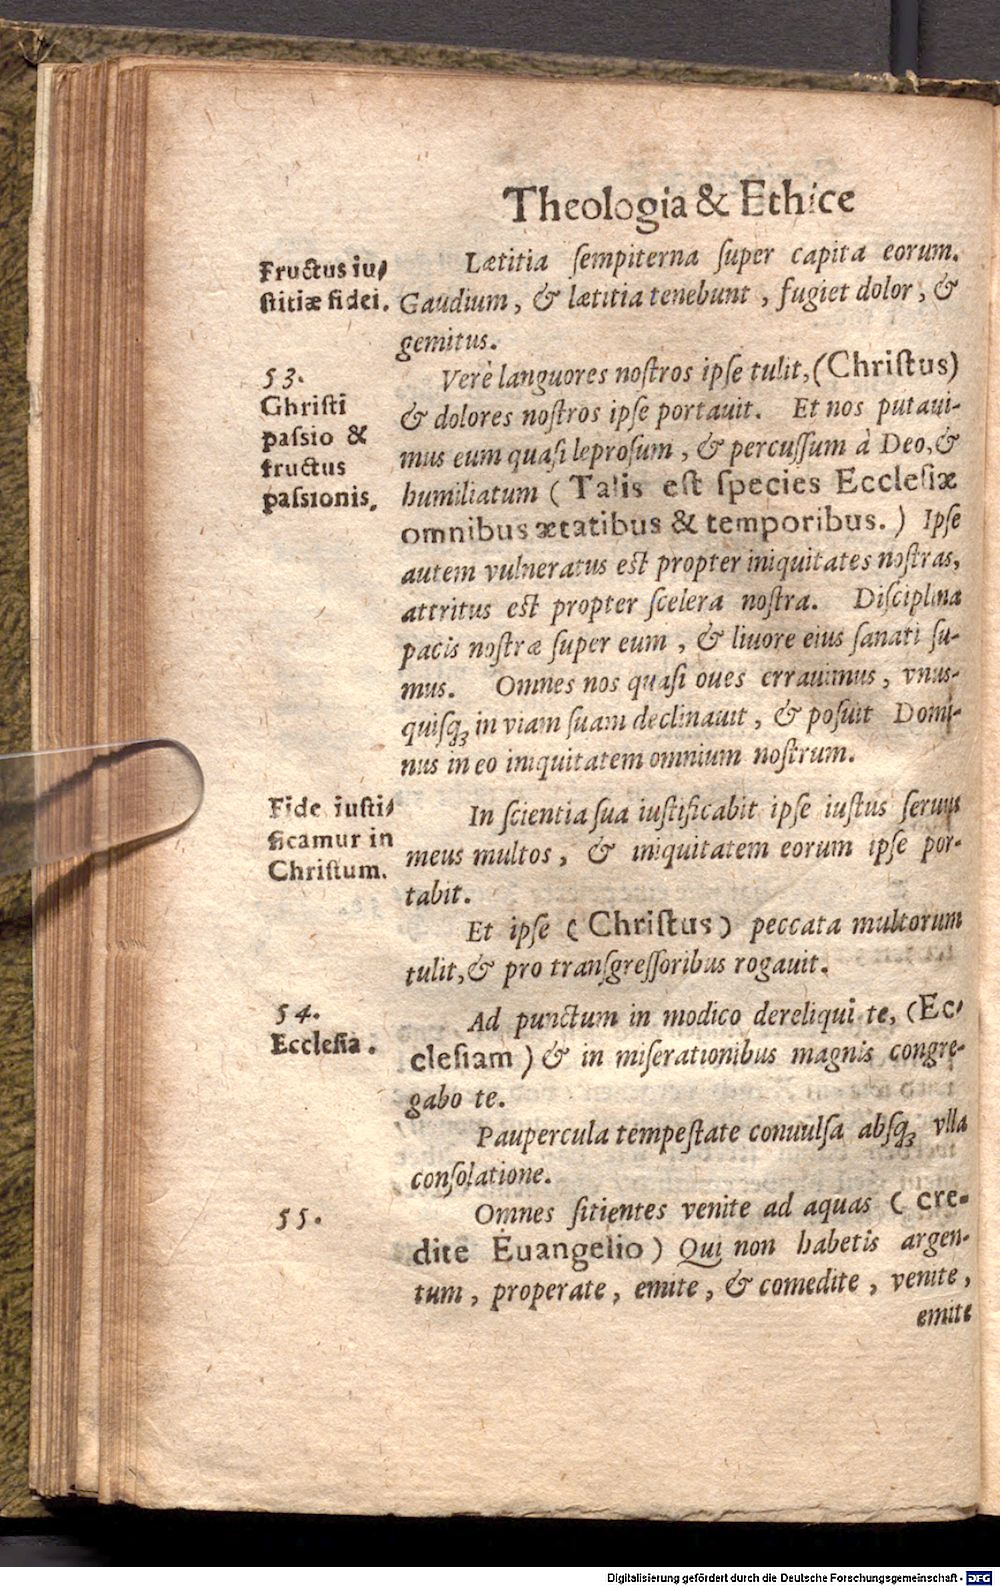 Theologia & Ethice
Fructus iu-
ſtitiæ fidei.
Lætitia ſempiterna ſuper capita eorum.
Gaudium, & lætitia tenebunt, fugiet dolor, &
gemitus.
53.
Ghriſti
paſsio &
fructus
paſsionis.
Verè languores noſtros ipſe tulit, (Chriſtus)
& dolores noſtros ipſe portauit. Et nos putaui-
mus eum quaſi leproſum, & percuſſum à Deo, &
humiliatum (Talis eſt ſpecies Eccleſiæ
omnibus ætatibus & temporibus.) Ipſe
autem vulneratus eſt propter iniquitates noſtras,
attritus eſt propter ſcelera noſtra. Diſciplina
pacis noſtræ ſuper eum, & liuore eius ſanati ſu-
mus. Omnes nos quaſi oues errauimus, vnus-
quiſqꝫ in viam ſuam declinauit, & poſuit Domi-
nus in eo iniquitatem omnium noſtrum.
Fide iuſti-
ficamur in
Chriſtum.
In ſcientia ſua iuſtificabit ipſe iuſtus ſeruus
meus multos, & iniquitatem eorum ipſe por-
tabit.
Et ipſe (Chriſtus) peccata multorum
tulit, & pro tranſgreſſoribus rogauit.
54.
Eccleſia.
Ad punctum in modico dereliqui te, (Ec-
cleſiam) & in miſerationibus magnis congre-
gabo te.
Paupercula tempeſtate conuulſa abſqꝫ vlla
conſolatione.
55.
Omnes ſitientes venite ad aquas (cre-
dite Euangelio) Qui non habetis argen-
tum, properate, emite, & comedite, venite,
emite
Digitalisierung gefördert durch die Deutsche Forschungsgemeinschaft - DFG